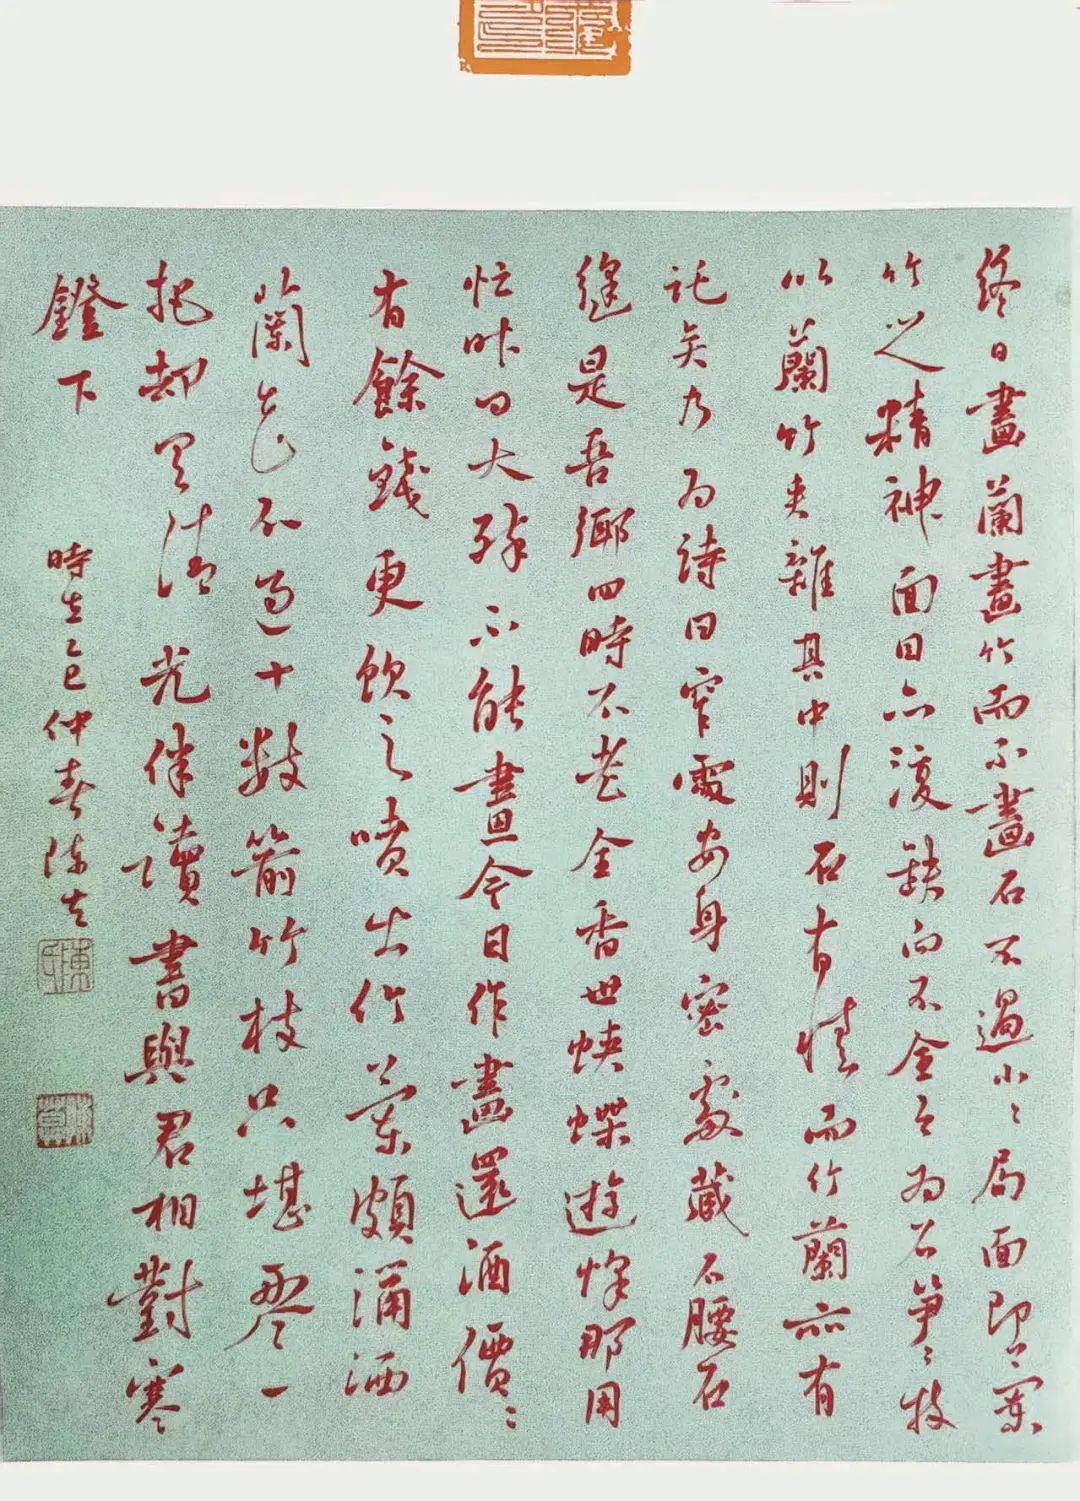 終日畫蘭畫竹而不畫石不過小〻局面即〻蘭
竹之精神面目亦復缺而不全〻為石筍〻枝
以蘭竹夾雜其中則石有情而竹蘭亦有
託矣乃為詩曰窄處安身密處藏石腰石
縫是吾鄉四時不老全香世蛺蝶遊蜂那用
忙昨日大醉不能畫今日作畫還酒價〻
有餘錢更飲之噴出竹葉頗涌洒
蘭花不過十數箭竹枝只堪一
把却是清光伴讀書與君相對寒
鐙下
時在乙巳仲春
陳